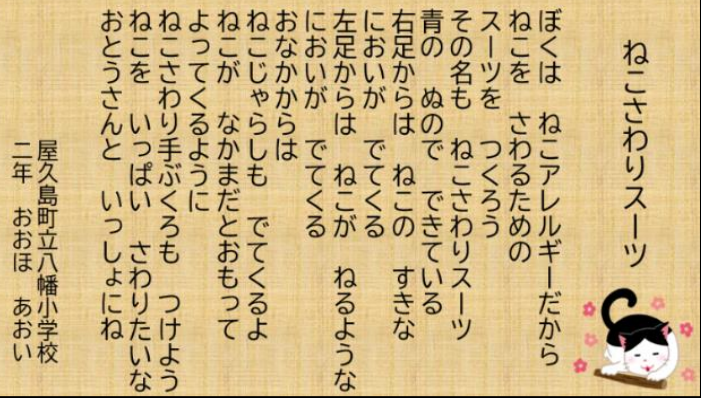 ねこさわりスーツ
ぼくは　ねこアレルギーだから
ねこを　さわるための
スーツを　つくろう
その名も　ねこさわりスーツ
青の　ぬので　できている
右足からは　ねこの　すきな
においが　でてくる
左足からは　ねこが　ねるような
においが　でてくる
おなかからは
ねこじゃらしも　でてくるよ
ねこが　なかまだとおもって
よってくるように
ねこさわり手ぶくろも　つけよう
ねこを　いっぱい　さわりたいな
おとうさんと　いっしょにね
屋久島町立八幡小学校
二年　おおほ　あおい